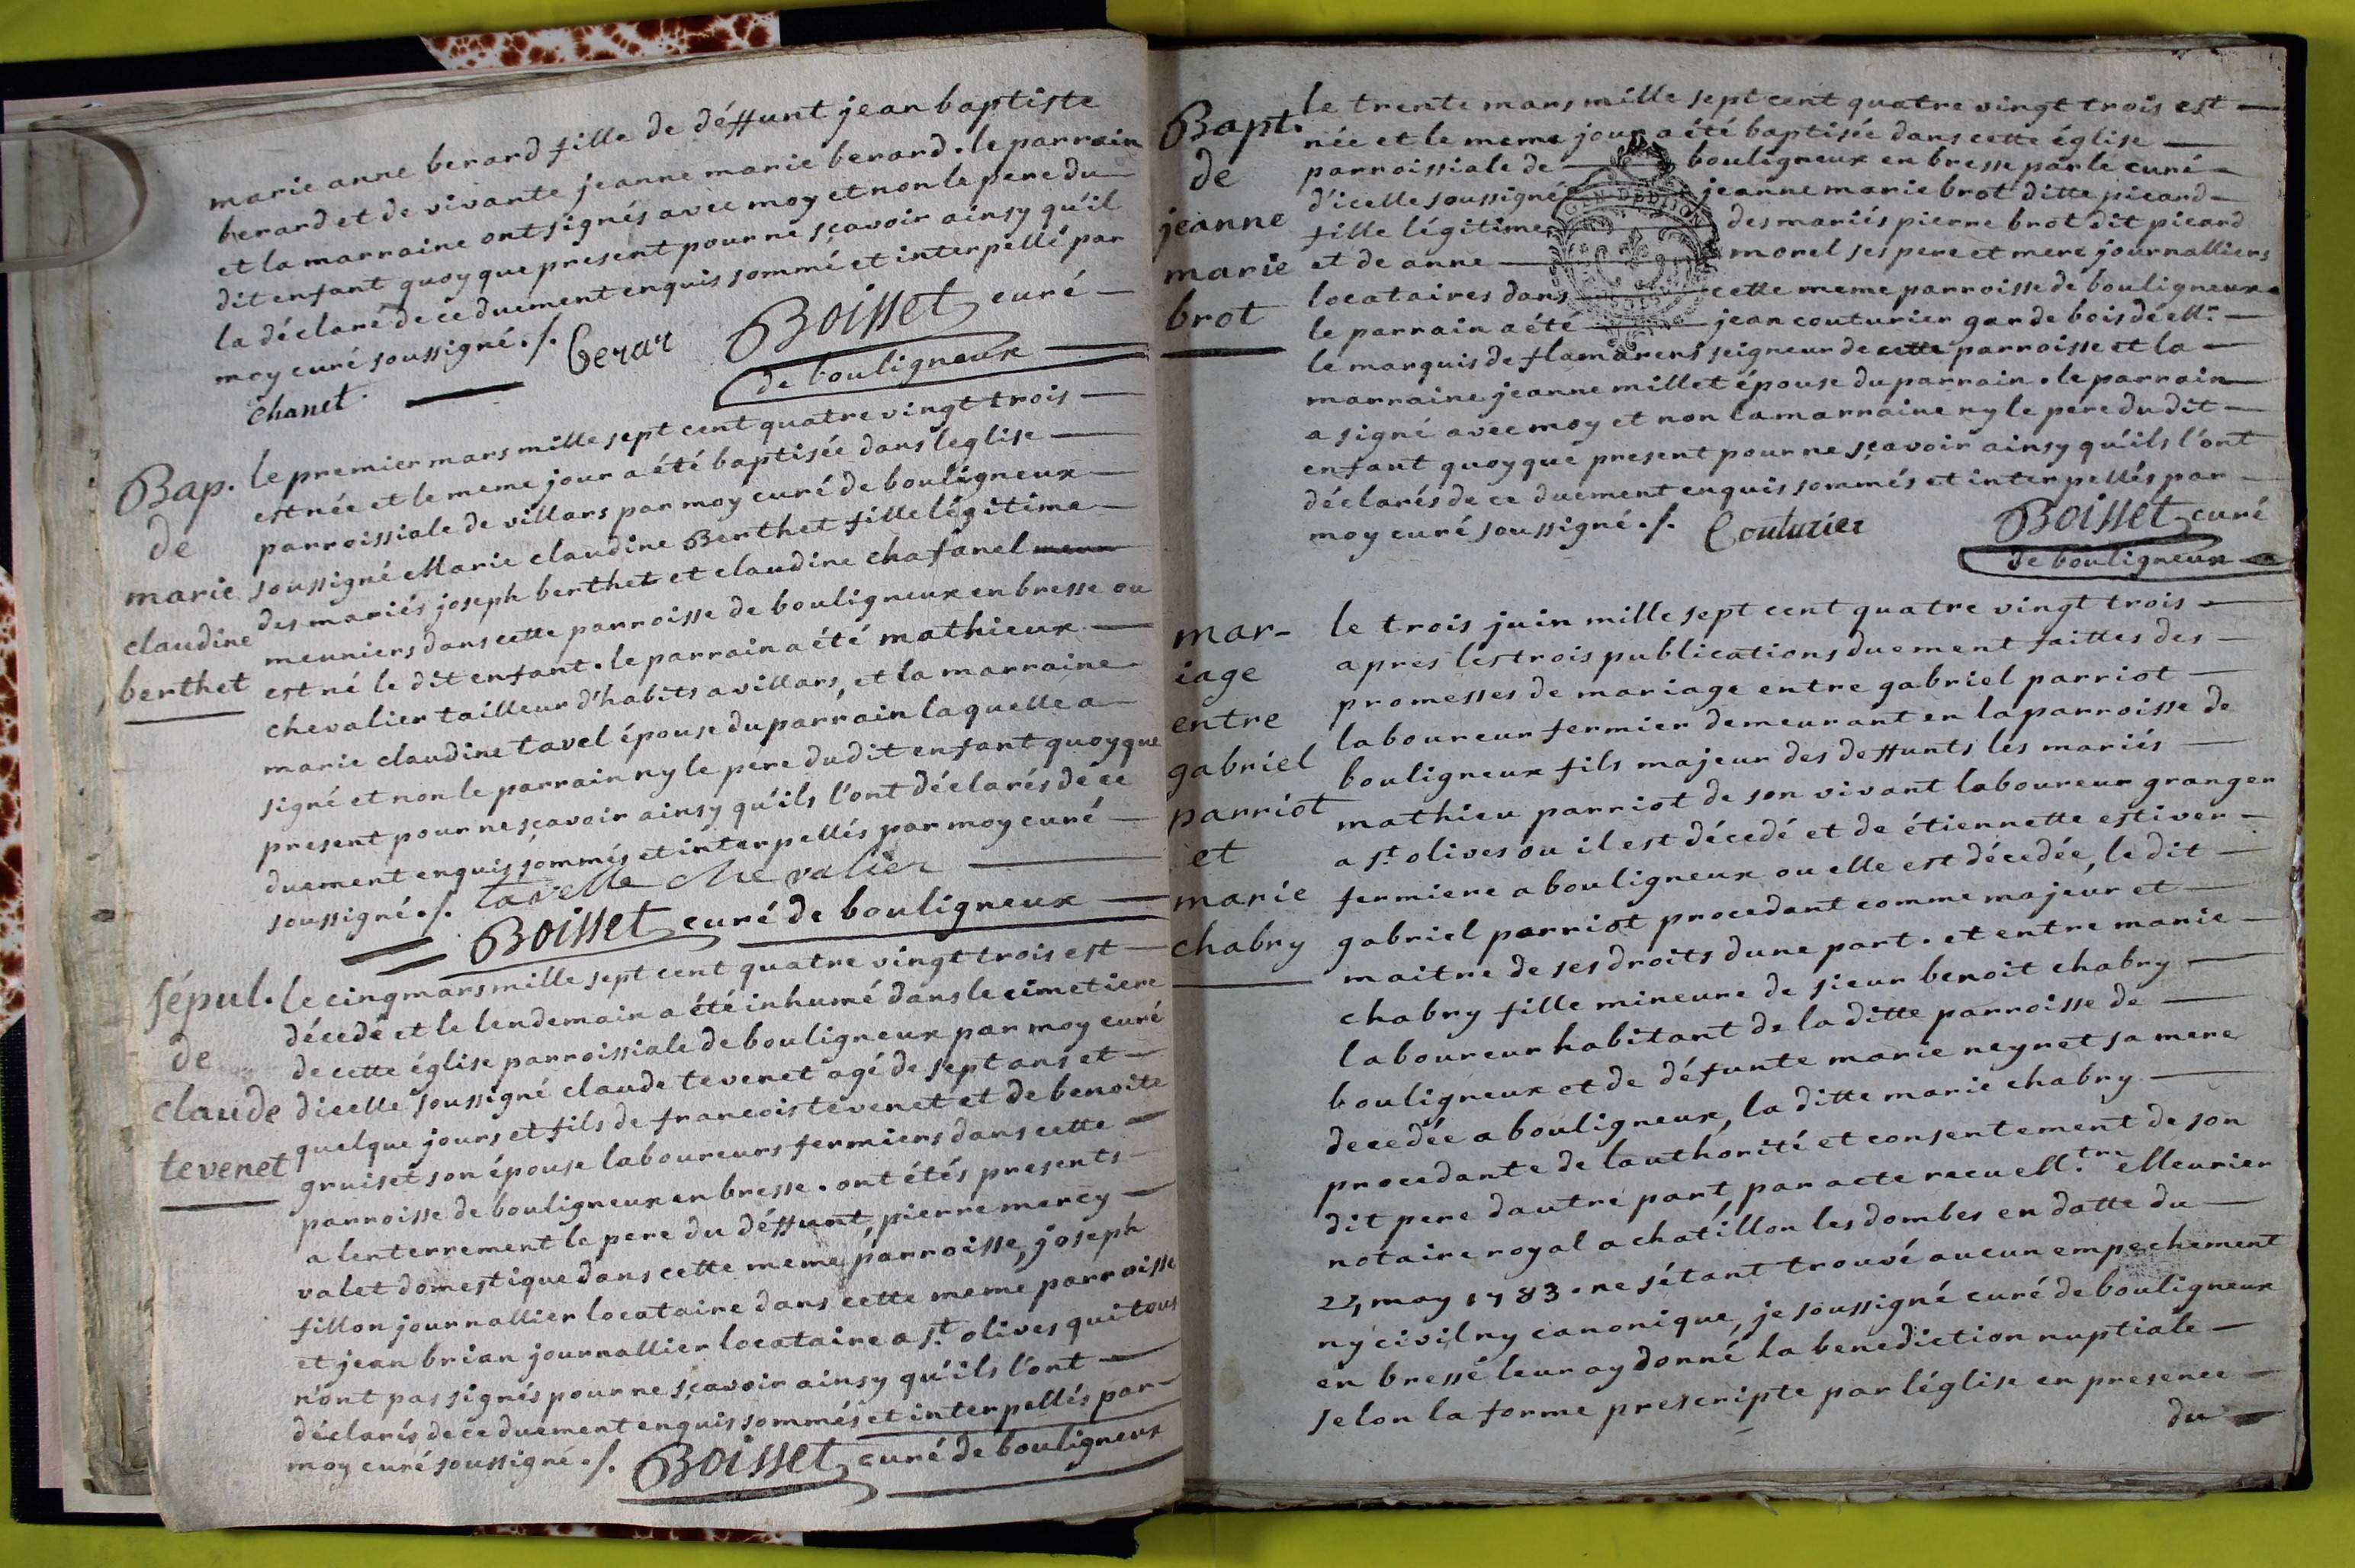 marie anne berard fille de déffunt jean baptiste
berard et de vivante jeanne marie berard. le parrain
et la marraine ont signés avec moy et non le pere du
dit enfant quoy que present pour ne sçavoir ainsy qu'il
la déclaré de ce duement enquis sommé et interpellé par
moy curé soussigné ./. berar Boisset curé
chanet de bouligneux
Bap.
de
marie
claudine
berthet
le premier mars mille sept cent quatre vingt trois
est née et le meme jour a été baptisée dans leglise
parroissiale de villars par moy curé de bouligneux
soussigné Marie claudine Berthet fille légitime
des mariés joseph berthet et claudine chafanel
meuniers dans cette parroisse de bouligneux en bresse ou
est né le dit enfant. le parrain a été mathieux
chevalier tailleur d'habits a villars, et la marraine
marie claudine tavel épouse du parrain laquelle a
signé et non le parrain ny le pere dudit enfant quoyque
present pour ne sçavoir ainsy qu'ils l'ont déclarés de ce
duement enquis sommés et interpellés par moy curé
soussigné ./. tavelle chevalier
Boisset curé de bouligneux
sépul.
de
claude
tevenet
le cinq mars mille sept cent quatre vingt trois est
décedé et le lendemain a été inhumé dans le cimetiere
de cette église parroissiale de bouligneux par moy curé
dicelle soussigné claude tevenet agé de sept ans et
quelque jours et fils de francois tevenet et de benoite
gruiset son épouse laboureurs fermiers dans cette
parroisse de bouligneux en bresse. ont étés presents
a lenterrement le pere du déffunt, pierre mercy
valet domestique dans cette meme parroisse, joseph
fillon journallier locataire dans cette meme parroisse
et jean brian journallier locataire a st olives qui tous
n'ont pas signés pour ne sçavoir ainsy qu'ils l'ont
déclarés de ce duement enquis sommés et interpellés par
moy curé soussigné ./. Boisset curé de bouligneux
Bapt.
de
jeanne
marie
brot
le trente mars mille sept cent quatre vingt trois est
née et le meme jour a été baptisée dans cette église
parroissiale de bouligneux en bresse par le curé
d'icelle soussigné jeanne marie brot ditte picard
fille légitime des mariés pierre brot dit picard
et de anne morel ses pere et mere journalliers
locataires dans cette meme parroisse de bouligneux
le parrain a été jean couturier garde bois de Mr
le marquis de flamarens seigneur de cette parroisse et la
marraine jeanne millet épouse du parrain. le parrain
a signé avec moy et non la marraine ny le pere du dit
enfant quoyque present pour ne sçavoir ainsy qu'ils l'ont
déclarés de ce duement enquis sommés et interpellés par
moy curé soussigné ./. Couturier Boisset curé
de bouligneux
mar-
iage
entre
gabriel
parriot
et
marie
chabry
le trois juin mille sept cent quatre vingt trois
apres les trois publications duement faittes des
promesses de mariage entre gabriel parriot
laboureur fermier demeurant en la parroisse de
bouligneux fils majeur des deffunts les mariés
mathieu parriot de son vivant laboureur granger
a st olives ou il est décedé et de étiennette estiver
fermiere a bouligneux ou elle est décedée, le dit
gabriel parriot procedant comme majeur et
maitre de ses droits dune part. et entre marie
chabry fille mineure de sieur benoit chabry
laboureur habitant de la ditte parroisse de
bouligneux et de défunte marie neyret sa mere
decedée a bouligneux, la ditte marie chabry
procedante de lauthorité et consentement de son
dit pere dautre part, par acte recu M.tre Meurier
notaire royal a chatillon les dombes en datte du
22, may 1783. ne sétant trouvé aucun empechement
ny civil ny canonique, je soussigné curé de bouligneux
en bresse leur ay donné la benediction nuptiale
selon la forme prescripte par léglise en presence
du